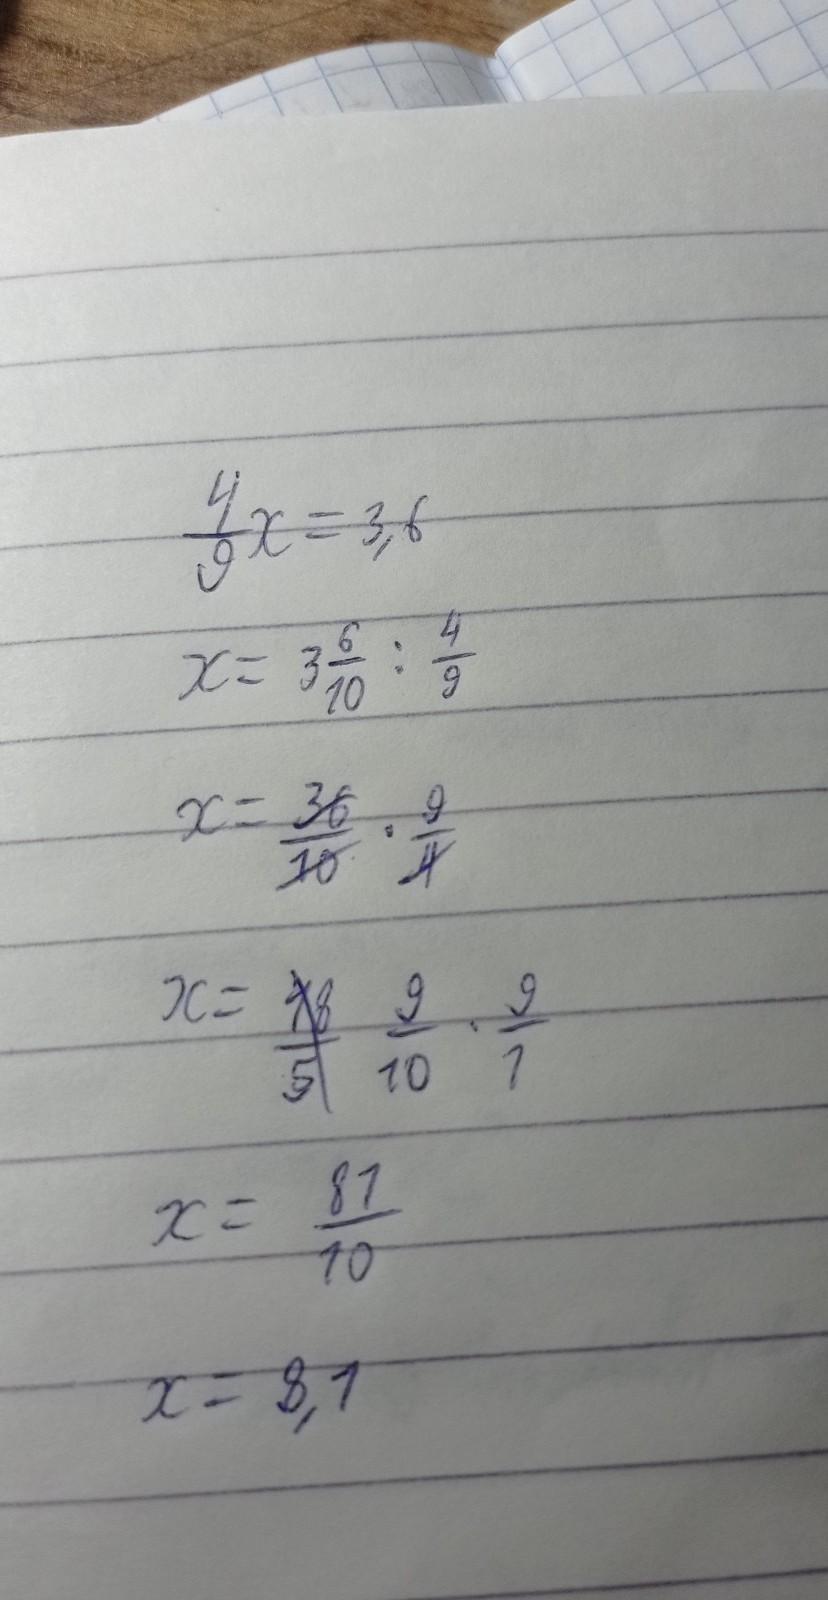 4/9 x = 3,6
x = 3 6/10 : 4/9
x = 36/10 · 9/4
x = 18/5 9/10 · 9/1
x = 81/10
x = 8,1